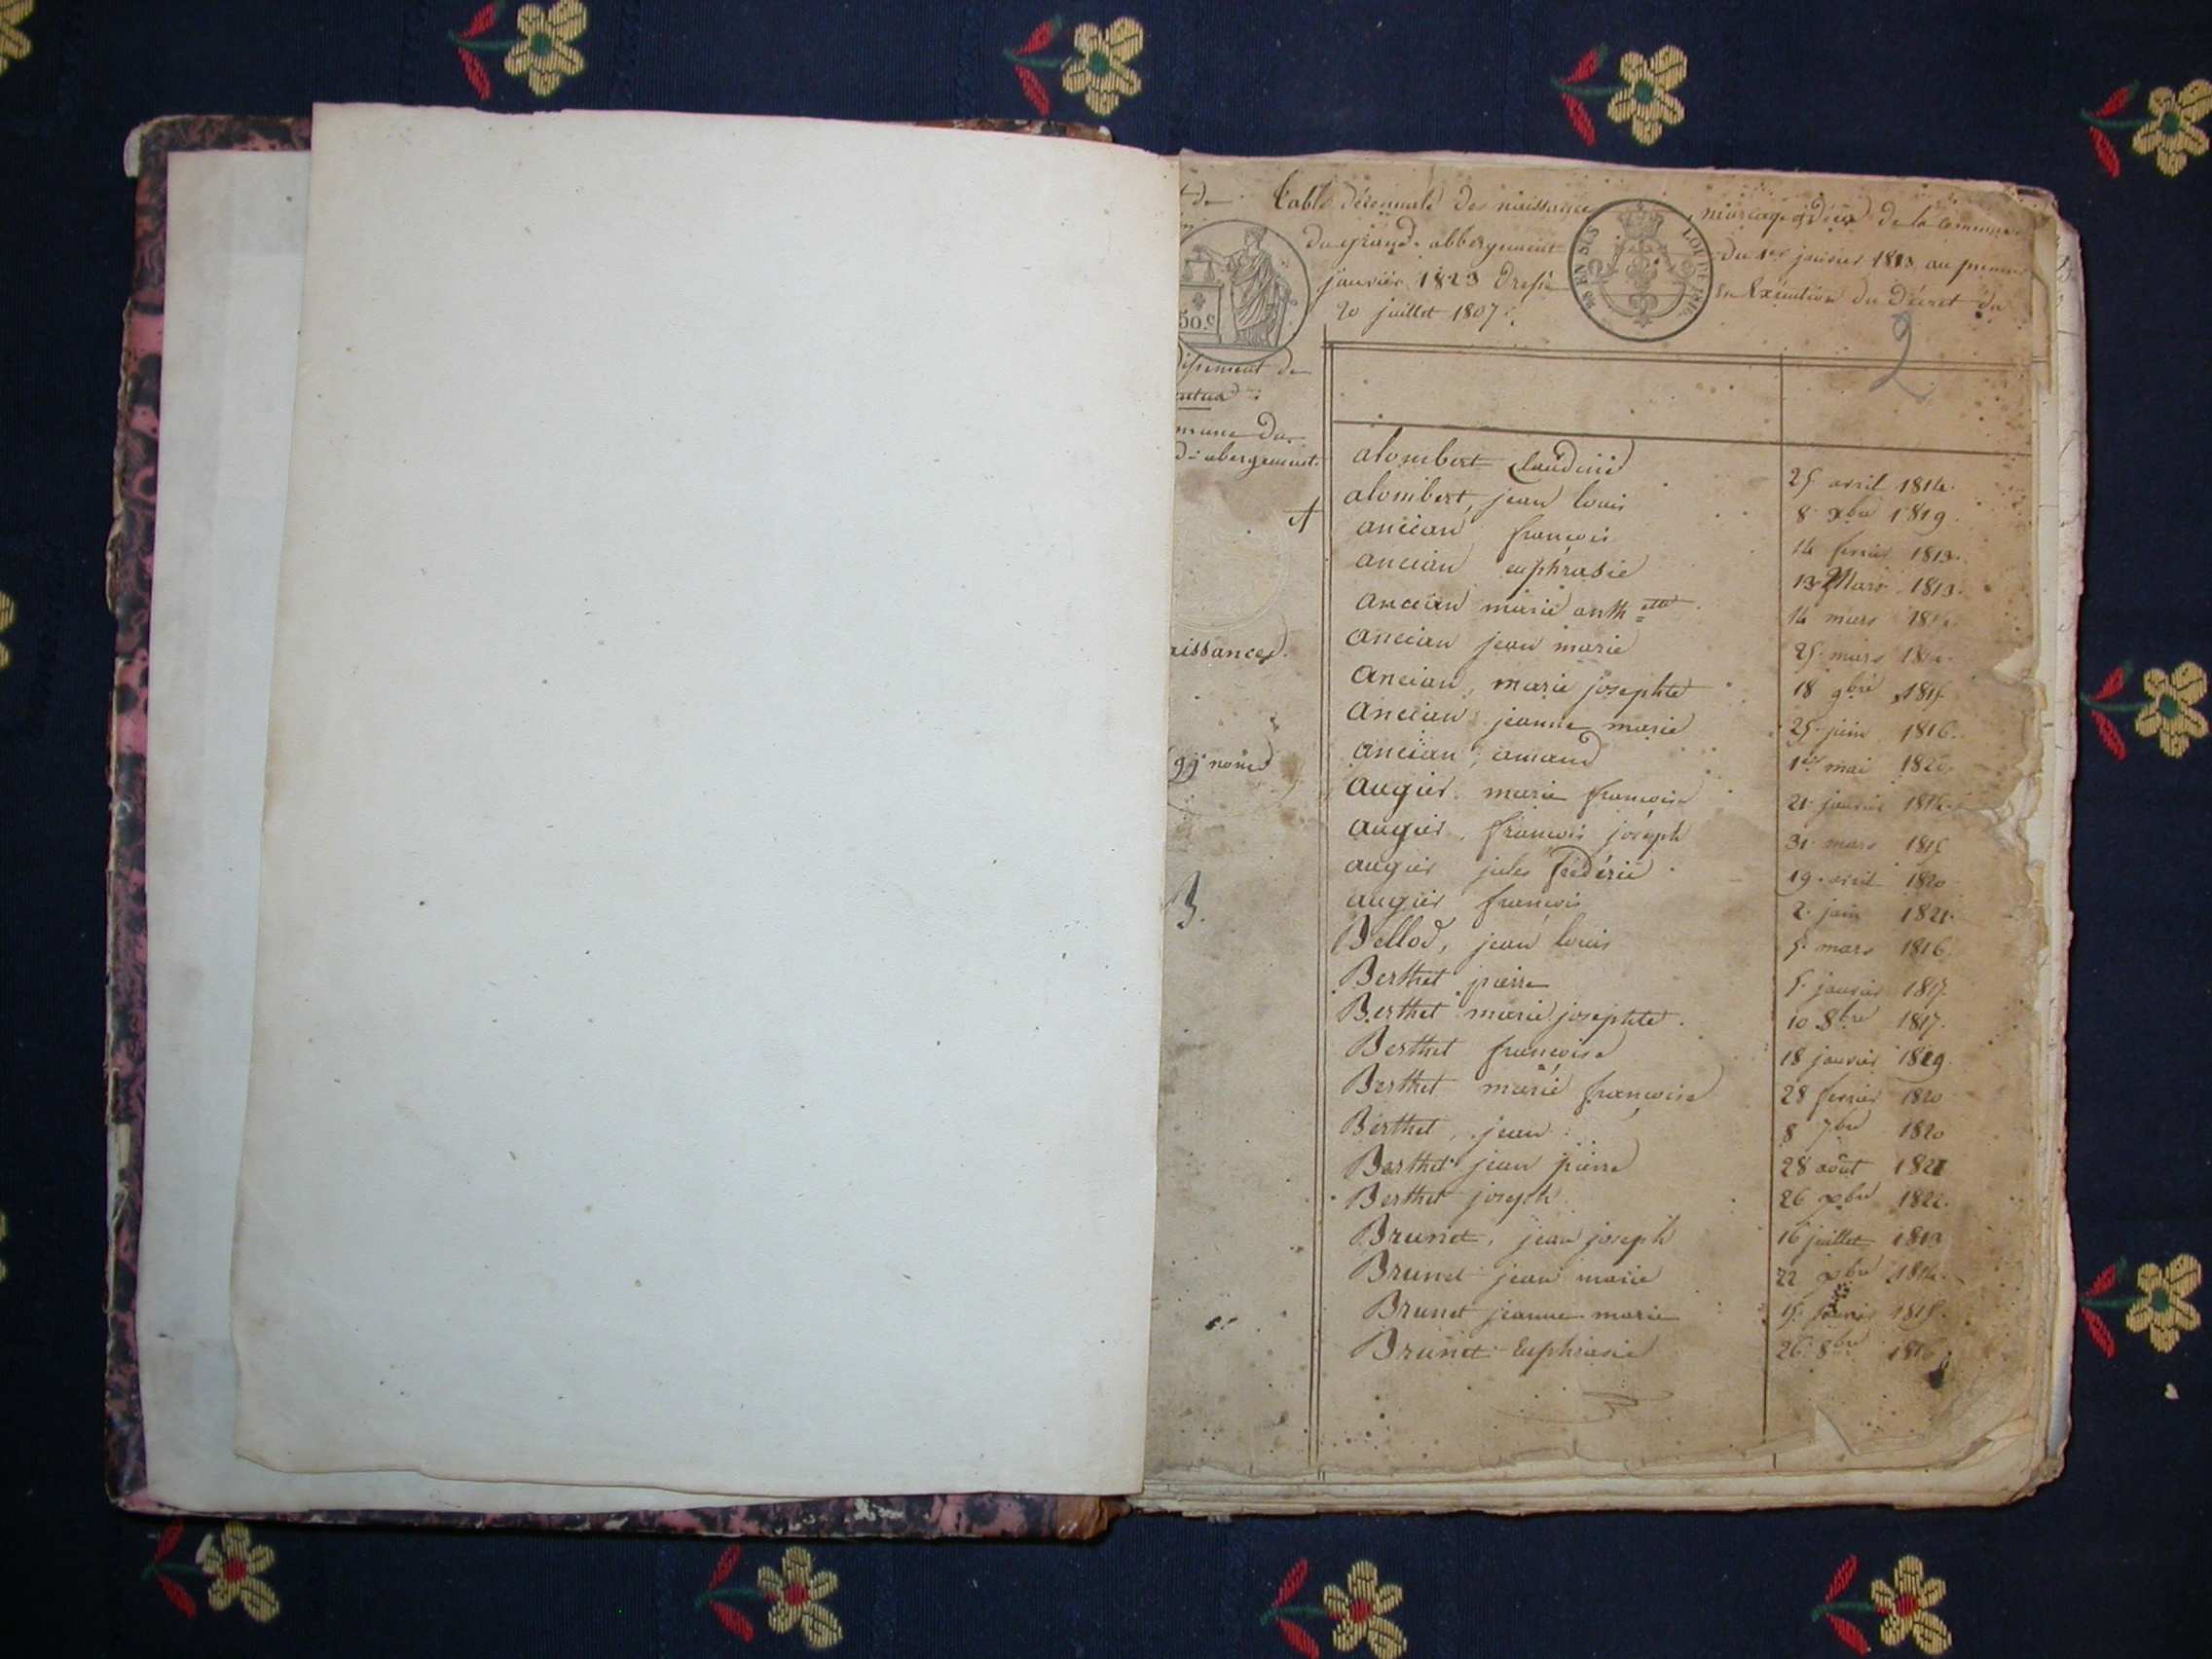 t de
Table décennale des naissances, mariages & décès de la commune
du grand-abbergement du 1er janvier 1813 au premier
janvier 1823 dressé en Exécution du Décret du
20 juillet 1807.
58 EN SUS
LOI DE 1816
50.c
2
dissement de
ntua
mmune du
d-abergement
A
aissances.
99 noms
B.
alombert Claudine 25 avril 1814.
alombert, jean louis 8 xbre 1819.
ancian françois 14 fevrier 1813.
ancian euphrasie 13 Mars 1813.
ancian marie anthtte 14 mars
ancian jean marie 25 mars
ancian, marie josephte 18 9bre 1815
ancian jeanne marie 25 juin 1816.
ancian, amand 1er mai 1820
augier marie françoise 21 janvier 1814.
augier, françois joseph 31 mars 1815
augier jules frédéric 19 avril 1820
augier françois 2 juin 1821.
Bellod, jean louis 5 mars 1816
Berthet pierre 5 janvier 1817
Berthet marie josephte. 10 8bre 1817.
Berthet françoise 18 janvier 1819
Berthet marie françoise 28 fevrier 1820
Berthet, jean 8 7bre 1820
Berthet jean pierre 28 août 1821
Berthet joseph 26 xbre 1822.
Brunet, jean joseph 16 juillet 1813
Brunet jean marie 22 xbre 1814.
Brunet jeanne marie 15 1815.
Brunet Euphrasie 26 8bre 1816